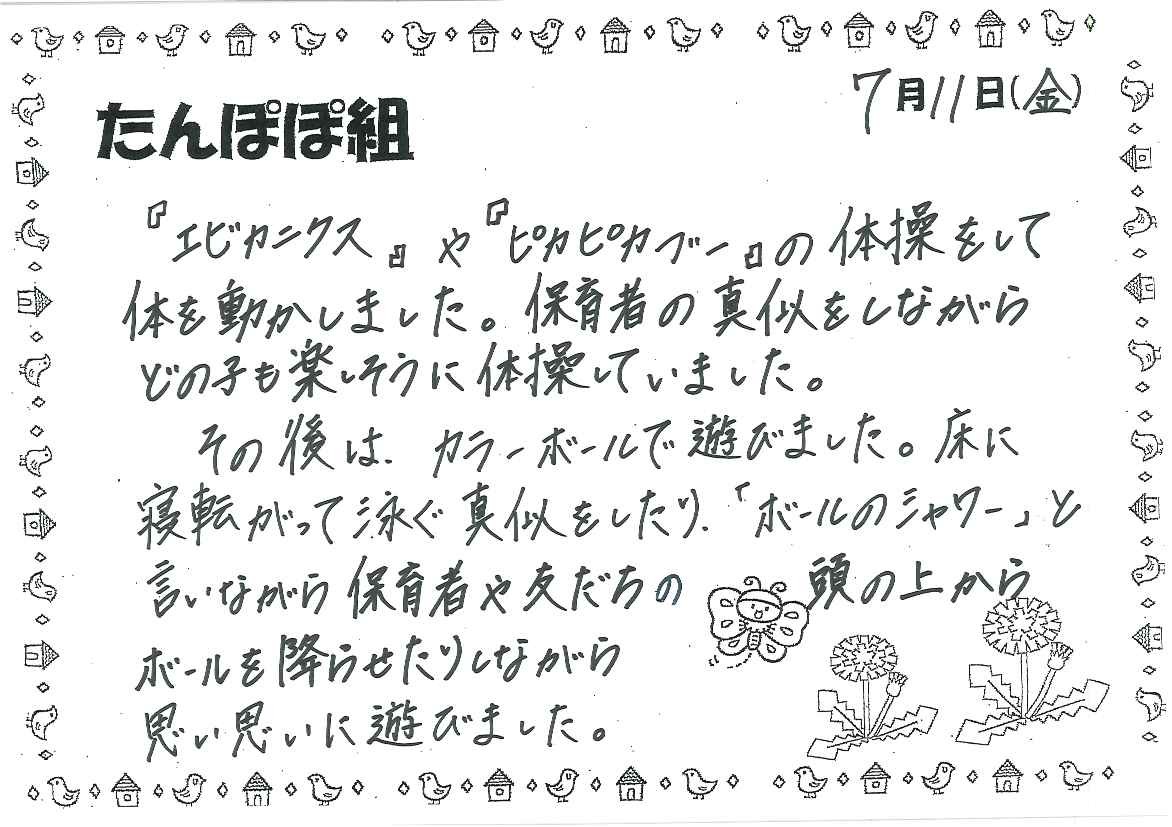 7月11日(金)
たんぽぽ組
『エビカニクス』や『ピカピカブー』の体操をして
体を動かしました。保育者の真似をしながら
どの子も楽しそうに体操していました。
その後は、カラーボールで遊びました。床に
寝転がって泳ぐ真似をしたり、「ボールのシャワー」と
言いながら保育者や友だちの頭の上から
ボールを降らせたりしながら
思い思いに遊びました。